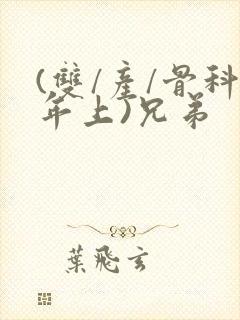 (雙/產/骨科
年上)兄弟
葉飛玄